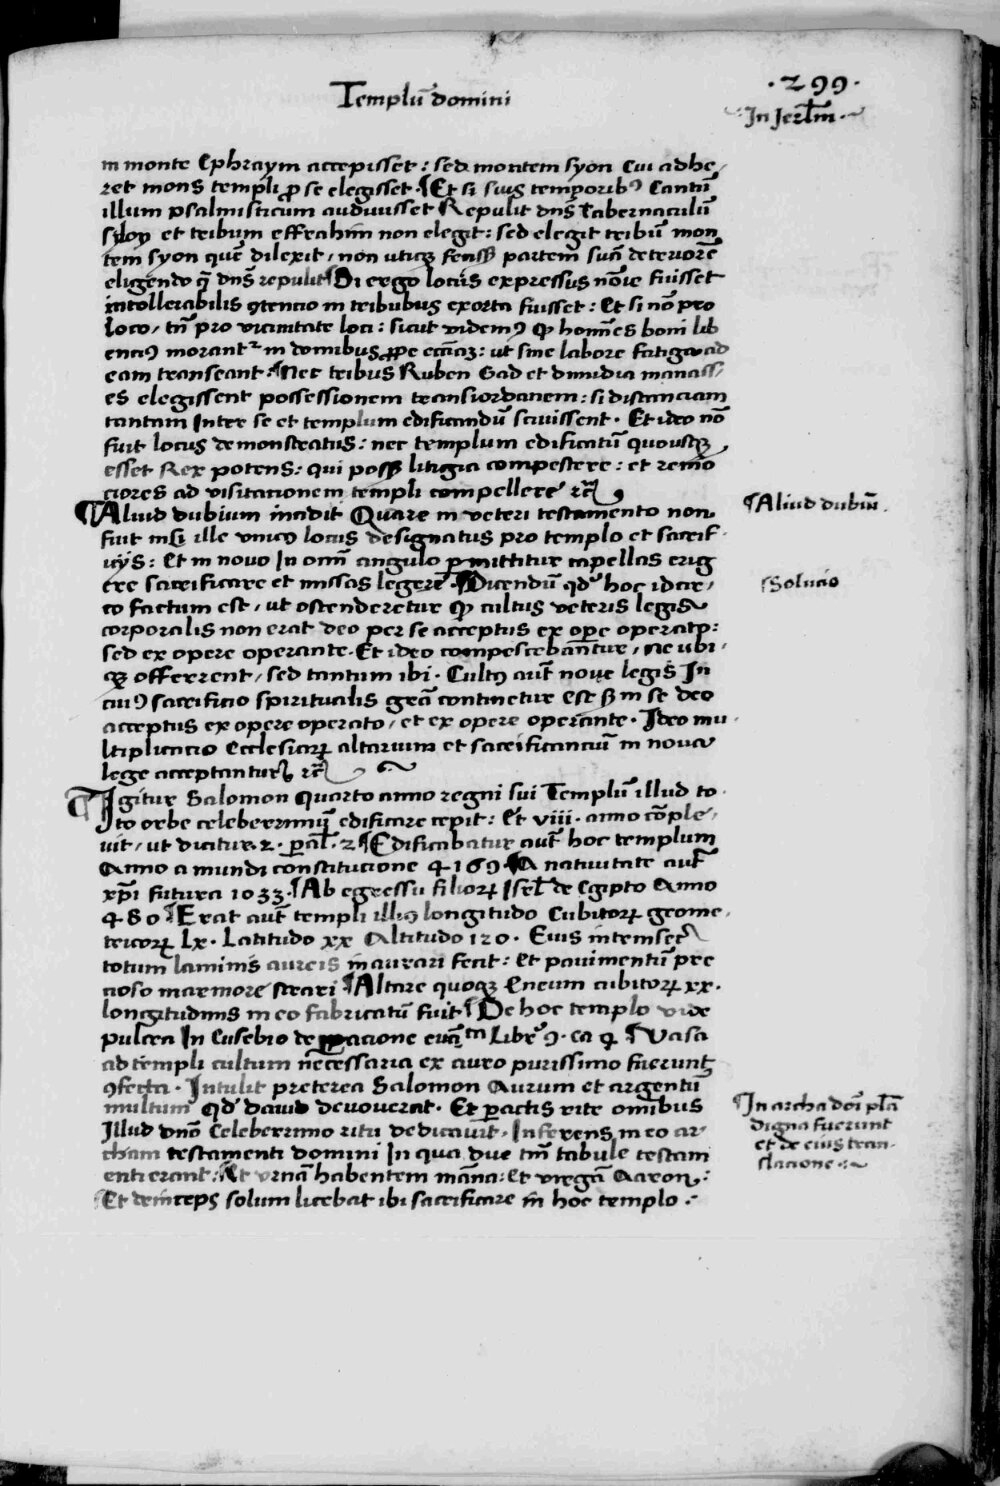 ·299·
Templū domini
In Jerl̄m
in monte Ephraym accepisset : sed montem syon cui adhe/
ret mons templi ꝓ se elegisset · ¶ Et si suis temporibꝰ Cantū
illum psalmisticum audivisset Repulit dn̄s tabernaculū
syloy et tribum effrahim non elegit : sed elegit tribū mon
tem syon quē dilexit / non utiqꝫ sensissꝫ partem suā deteriorē
eligendo q̄ dn̄s repulit ¶ Di ergo locus expressus nōīe fuisset
intollerabilis ꝯtencio in tribubus exorta fuisset : Et si nō pro
loco / tn̄ pro vicinitate loci : sicut videmꝰ ꝙ homines boni lib
enciꝰ morantʳ in domibus ꝓpe eccīaꝫ : ut sine labore fatiga ad
eam transeant : ¶ Nec tribus Ruben Gad et dimidia manass/
es elegissent possessionem transiordanem : si distanciam
tantam inter se et templum edificandū scivissent · Et ideo nō
fuit locus demonstratus : nec templum edificatū quousqꝫ
esset Rex potens : qui possꝫ litigia compescere : et remo
ciores ad visitacionem templi compellere ꝛc̄
¶ Aliud dubium incidit Quare in veteri testamento non
fuit nisi ille unicꝰ locus designatus pro templo et sacrif·
iciis : Et in novo In omī angulo ꝑmittitur capellas erig
ere sacrificare et missas legere · ¶ Dicendū qd̄ hoc idcir/
co factum est / ut ostenderetur ꝙ cultus veteris legis
corporalis non erat deo per se acceptus ex ope operato :
sed ex opere operante · Et ideo compescebantur / ne ubi·
qꝫ offerrent / sed tantum ibi · Cultꝰ aut̄ noue legis In
cuiꝰ sacrificio spiritualis grā continetur est ꝑ se deo
acceptus ex opere operato / et ex opere operante · Ideo mu·
ltiplicacio Ecclesiarꝝ altarium et sacrificanciū in nova
lege acceptantur ꝛc̄
¶ Igitur Salomon quarto anno regni sui Templū illud to·
to orbe celeberrimū edificare cepit : Et viii · anno cōple/
vit / ut dicitur · 2 · ꝑal̄ · 2 ¶ Edificabatur aut̄ hoc templum
Anno a mundi constitucione 4169 · ¶ A nativitate aut̄
xp̄i futura 1033 · ¶ Ab egressu filiorꝝ Isrl̄ de Egipto Anno
480 ¶ Erat aut̄ templi illiꝰ longitudo Cubitorꝝ geome/
tricorꝝ lx · Latitudo xx Altitudo 120 · Eius intrinsecꝰ
totum laminis aureis inaurari fecit : Et pavimentū pre
cioso marmore strari ¶ Altare quoqꝫ Eneum cubitorꝝ xx·
longitudinis in eo fabricatū fuit ¶ De hoc templo vide
pulcra In Eusebio de pꝛacione euāᵗᵃ Libr̄ 9 · ca 4 ¶ Vasa
ad templi cultum necessaria ex auro purissimo fuerunt
ꝯfecta · Intulit preterea Salomon Aurum et argentū
multum qd̄ david devoverat · Et ꝑactis rite omībus
Illud dn̄o Celeberrimo ritu dedicavit · Inferens in eo ar
cham testamenti domini In qua due tm̄ tabule testam
enti erant : ¶ Et vrnā habentem māna : et virgā Aaron :
Et deinceps solum licebat ibi sacrificare in hoc templo ·
¶ Aliud dubiū ·
¶ Solucio
¶ In archa dn̄i pl̄a
digna fuerunt
et de eius tran-
slacione